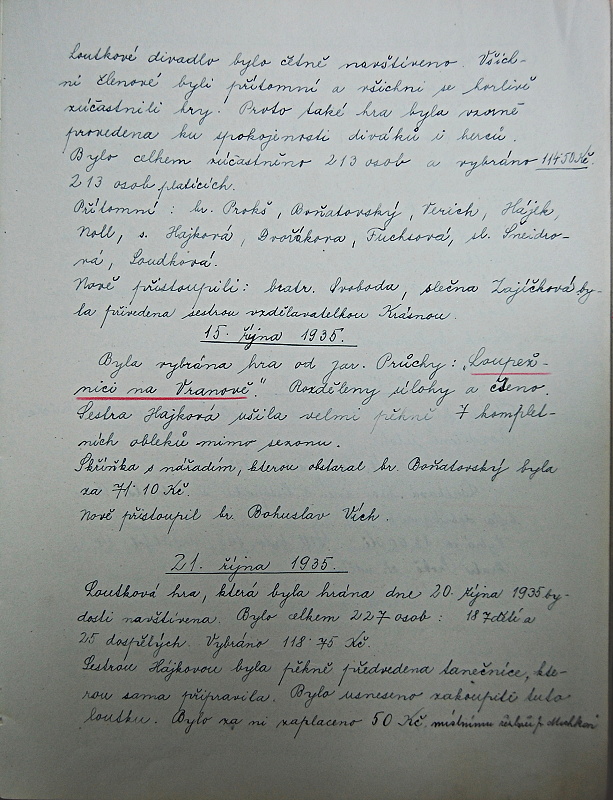 Loutkové divadlo bylo četně navštíveno. Všich-
ni členové byli přítomni a všichni se horlivě
zúčastnili hry. Proto také hra byla vzorně
provedena ku spokojenosti diváků i herců.
Bylo celkem zúčastněno 213 osob a vybráno 114·50 Kč.
213 osob platících.
Přítomní : br. Prokš, Boňatovský, Verich, Hájek,
Noll, s. Hajková, Dvořákova, Fuchsová, sl. Šneidro-
vá, Loudková.
Nově přistoupili : bratr. Svoboda, slečna Zajíčková by-
la přivedena sestrou vzdělavatelkou Krásnou.
15. října 1935.
Byla vybrána hra od jar. Průchy : „Loupež-
níci na Vranově." Rozděleny úlohy a čteno.
Sestra Hajková ušila velmi pěkně 7 komplet-
ních obleků mimo sezonu.
Skříňka s nářadím, kterou obstaral br. Boňatovský byla
za 71·10 Kč.
Nově přistoupil br. Bohuslav Vích.
21. října 1935.
Loutková hra, která byla hrána dne 20. října 1935 by-
dosti navštívena. Bylo celkem 227 osob : 187 dětí a
25 dospělých. Vybráno 118·75 Kč.
Sestrou Hájkovou byla pěkně předvedena tanečnice, kte-
rou sama připravila. Bylo usneseno zakoupiti tuto
loutku. Bylo za ni zaplaceno 50 Kč. místnímu